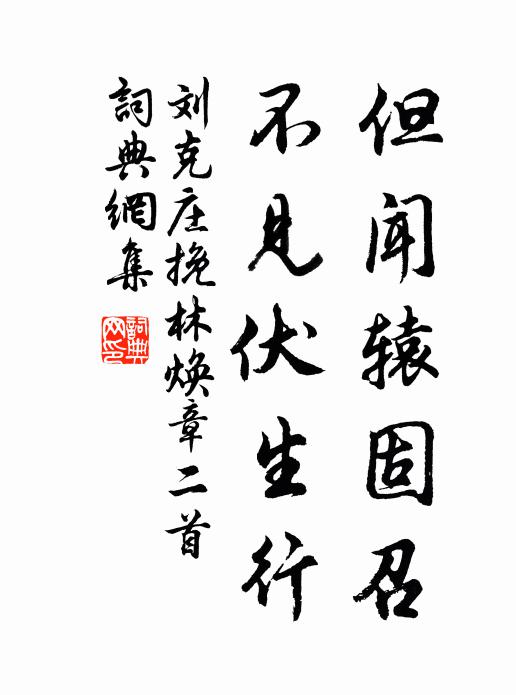 但闻辕固召
不见伏生行
刘克庄挽林焕章二首
詞典網集
詞典网印